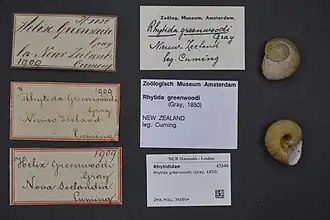 Helix Greenwoodi
Gray
Nov. Zeeland
1909 Cuming
1909
Rhytida Greenwoodi
Gray
Nieuw Zeeland
Cuming
1909
Helix Greenwoodi
Gray
Nova Seelandia
Cuming
Zoölog. Museum Amsterdam.
Rhytida greenwoodi
Gray
Nieuw Zeeland
leg. Cuming
Zoölogisch Museum Amsterdam
Rhytida greenwoodi
(Gray, 1850)
NEW ZEALAND
leg. Cuming
NCB Naturalis - Leiden
Rhytididae
Rhytida greenwoodi (Gray, 1850)